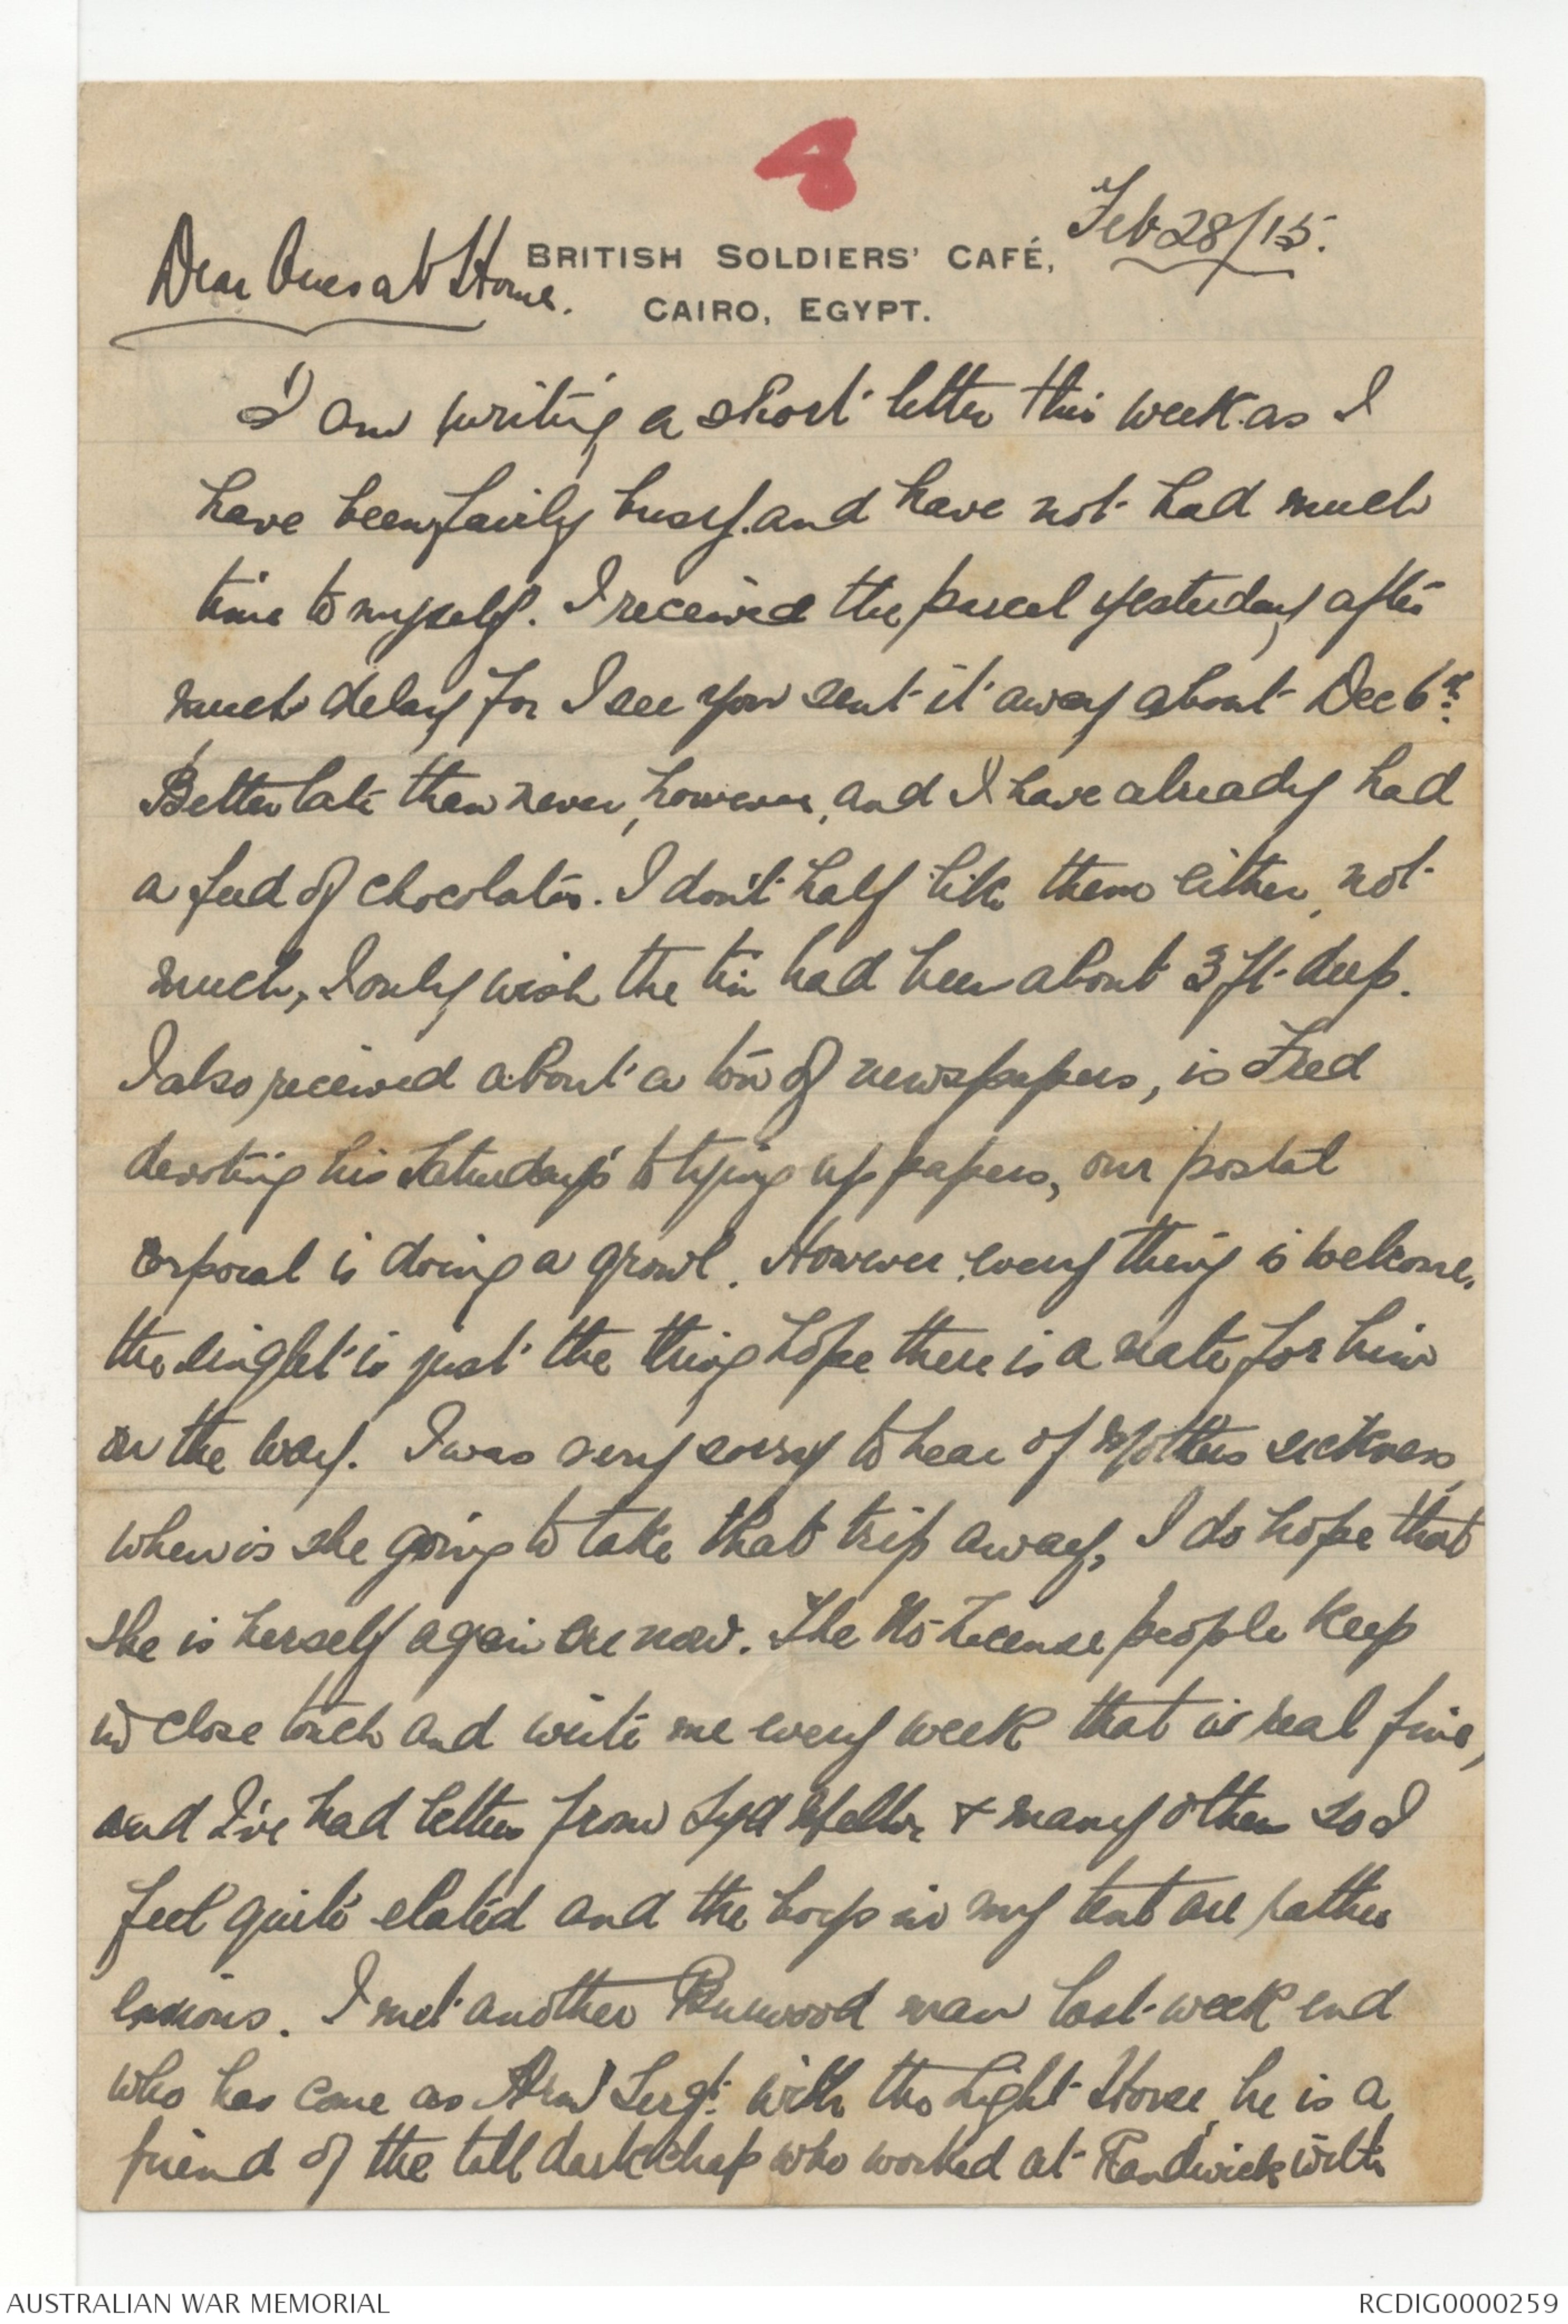 8
Feb 28/15.
BRITISH SOLDIERS' CAFÉ,
CAIRO, EGYPT.
Dear Ones at Home.
I am writing a short letter this week as I
have been fairly busy and have not had much
time to myself. I received the parcel yesterday after
much delay for I see you sent it away about Dec 6th.
Better late than never, however, and I have already had
a feed of chocolates. I don't half like them either, not
much, I only wish the tin had been about 3 ft deep.
I also received about a ton of newspapers, is Fred
devoting his Saturdays to tying up papers, our postal
Corporal is doing a growl. However everything is welcome,
the singlet is just the thing hope there is a mate for him
on the way. I was very sorry to hear of Mothers sickness,
when is she going to take that trip away, I do hope that
she is herself again ere now. The No-License people keep
in close touch and write me every week that is real fine,
and I've had letters from Syd Mellor & many others so I
feel quite elated and the boys in my tent are rather
envious. I met another Burwood man last week end
who has come as Arm Sergt. with the Light Horse, he is a
friend of the tall dark chap who worked at Randwick with
AUSTRALIAN WAR MEMORIAL
RCDIG0000259